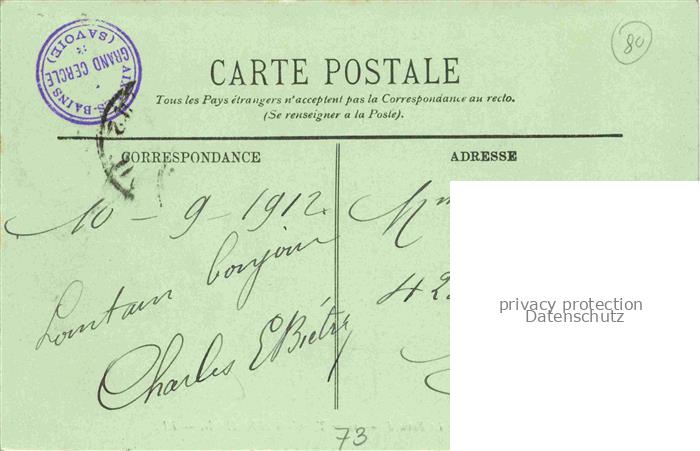 AIX-LES-BAINS
GRAND CERCLE
(SAVOIE)
80
CARTE POSTALE
Tous les Pays étrangers n'acceptent pas la Correspondance au recto.
(Se renseigner a la Poste).
CORRESPONDANCE
ADRESSE
10 - 9 - 1912.
Lointain bonjour
Charles
M
42
privacy protection
Datenschutz
73